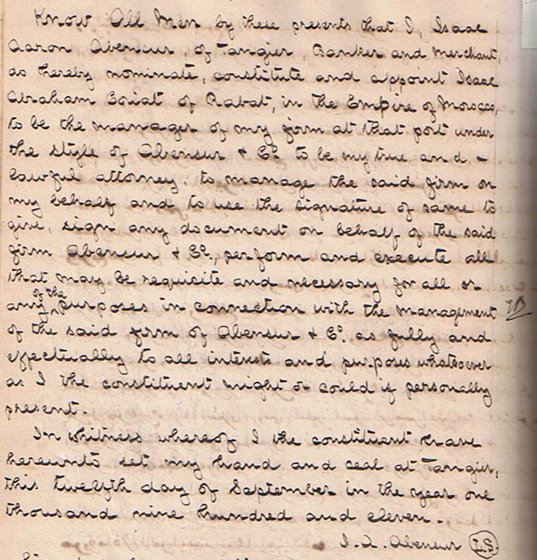 Know All Men by these presents that I, Isaac
Aaron Abensur, of Tangier, Banker and Merchant,
as hereby nominate, constitute and appoint Isaac
Abraham Coriat of Rabat, in the Empire of Morocco,
to be the manager of my firm at that port under
the style of Abensur & Co. to be my true and -
lawful attorney, to manage the said firm on
my behalf and to use the signature of same to
give, sign any document on behalf of the said
firm Abensur & Co., perform and execute all
that may be requisite and necessary for all or
of the
any purposes in connection with the management
of the said firm of Abensur & Co. as fully and
effectually to all intents and purposes whatsoever
as I the constituent might or could if personally
present.
In whitness whereof I the constituent have
hereunto set my hand and seal at Tangier,
this twelfth day of September in the year one
thousand nine hundred and eleven.
I. A. Abensur L.S.